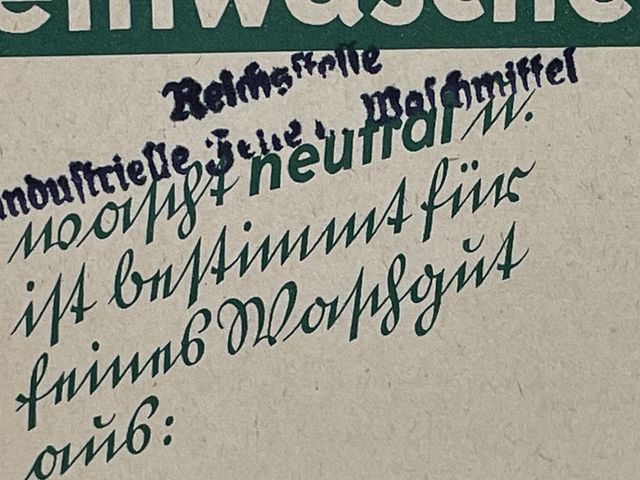 einwäsche
Reichsstelle
industrielle Fette u. Waschmittel
wäscht neutral u.
ist bestimmt für
feines Waschgut
aus: